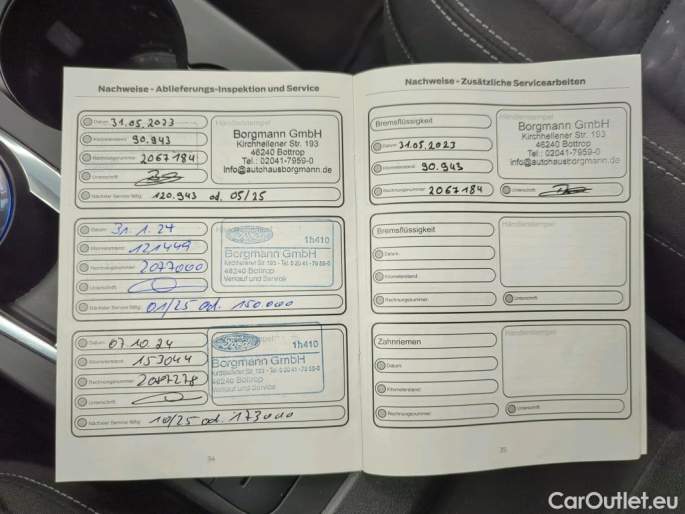 Nachweise - Ablieferungs-Inspektion und Service
Datum 31.05.2023
Händlerstempel
Kilometerstand 90.943
Rechnungsnummer 2067184
Unterschrift
Nächster Service fällig 120.943 od. 05/25
Borgmann GmbH
Kirchhellener Str. 193
46240 Bottrop
Tel.: 02041-7959-0
info@autohausborgmann.de
Datum 31.1.24
Kilometerstand 121449
Rechnungsnummer 2077000
Unterschrift
Nächster Service fällig 01/25 od. 150.000
1h410
Borgmann GmbH
Kirchhellener Str. 193 - Tel. 0 20 41 - 79 59-0
46240 Bottrop
Verkauf und Service
Datum 07.10.24
Kilometerstand 153044
Rechnungsnummer 2087278
Unterschrift
Nächster Service fällig 10/25 od. 173000
1h410
Borgmann GmbH
Kirchhellener Str. 193 - Tel. 0 20 41 - 79 59-0
46240 Bottrop
Verkauf und Service
34
Nachweise - Zusätzliche Servicearbeiten
Bremsflüssigkeit
Händlerstempel
Datum 31.05.2023
Kilometerstand 90.943
Rechnungsnummer 2067184
Unterschrift
Borgmann GmbH
Kirchhellener Str. 193
46240 Bottrop
Tel.: 02041-7959-0
info@autohausborgmann.de
Bremsflüssigkeit
Händlerstempel
Datum
Kilometerstand
Rechnungsnummer
Unterschrift
Zahnriemen
Händlerstempel
Datum
Kilometerstand
Rechnungsnummer
Unterschrift
35
CarOutlet.eu